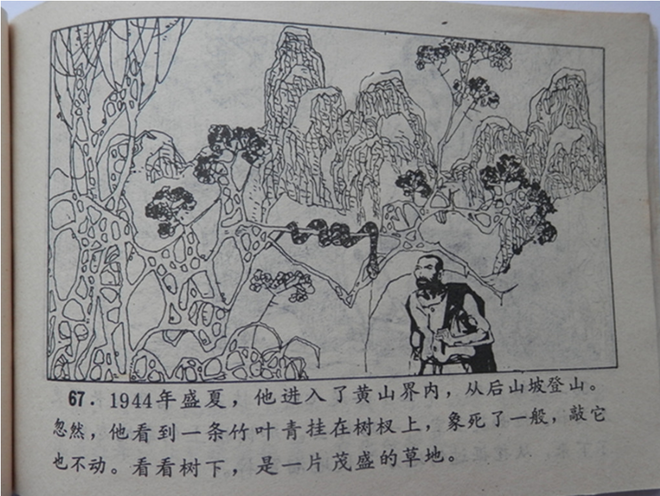 67. 1944年盛夏，他进入了黄山界内，从后山坡登山。
忽然，他看到一条竹叶青挂在树杈上，象死了一般，敲它
也不动。看看树下，是一片茂盛的草地。